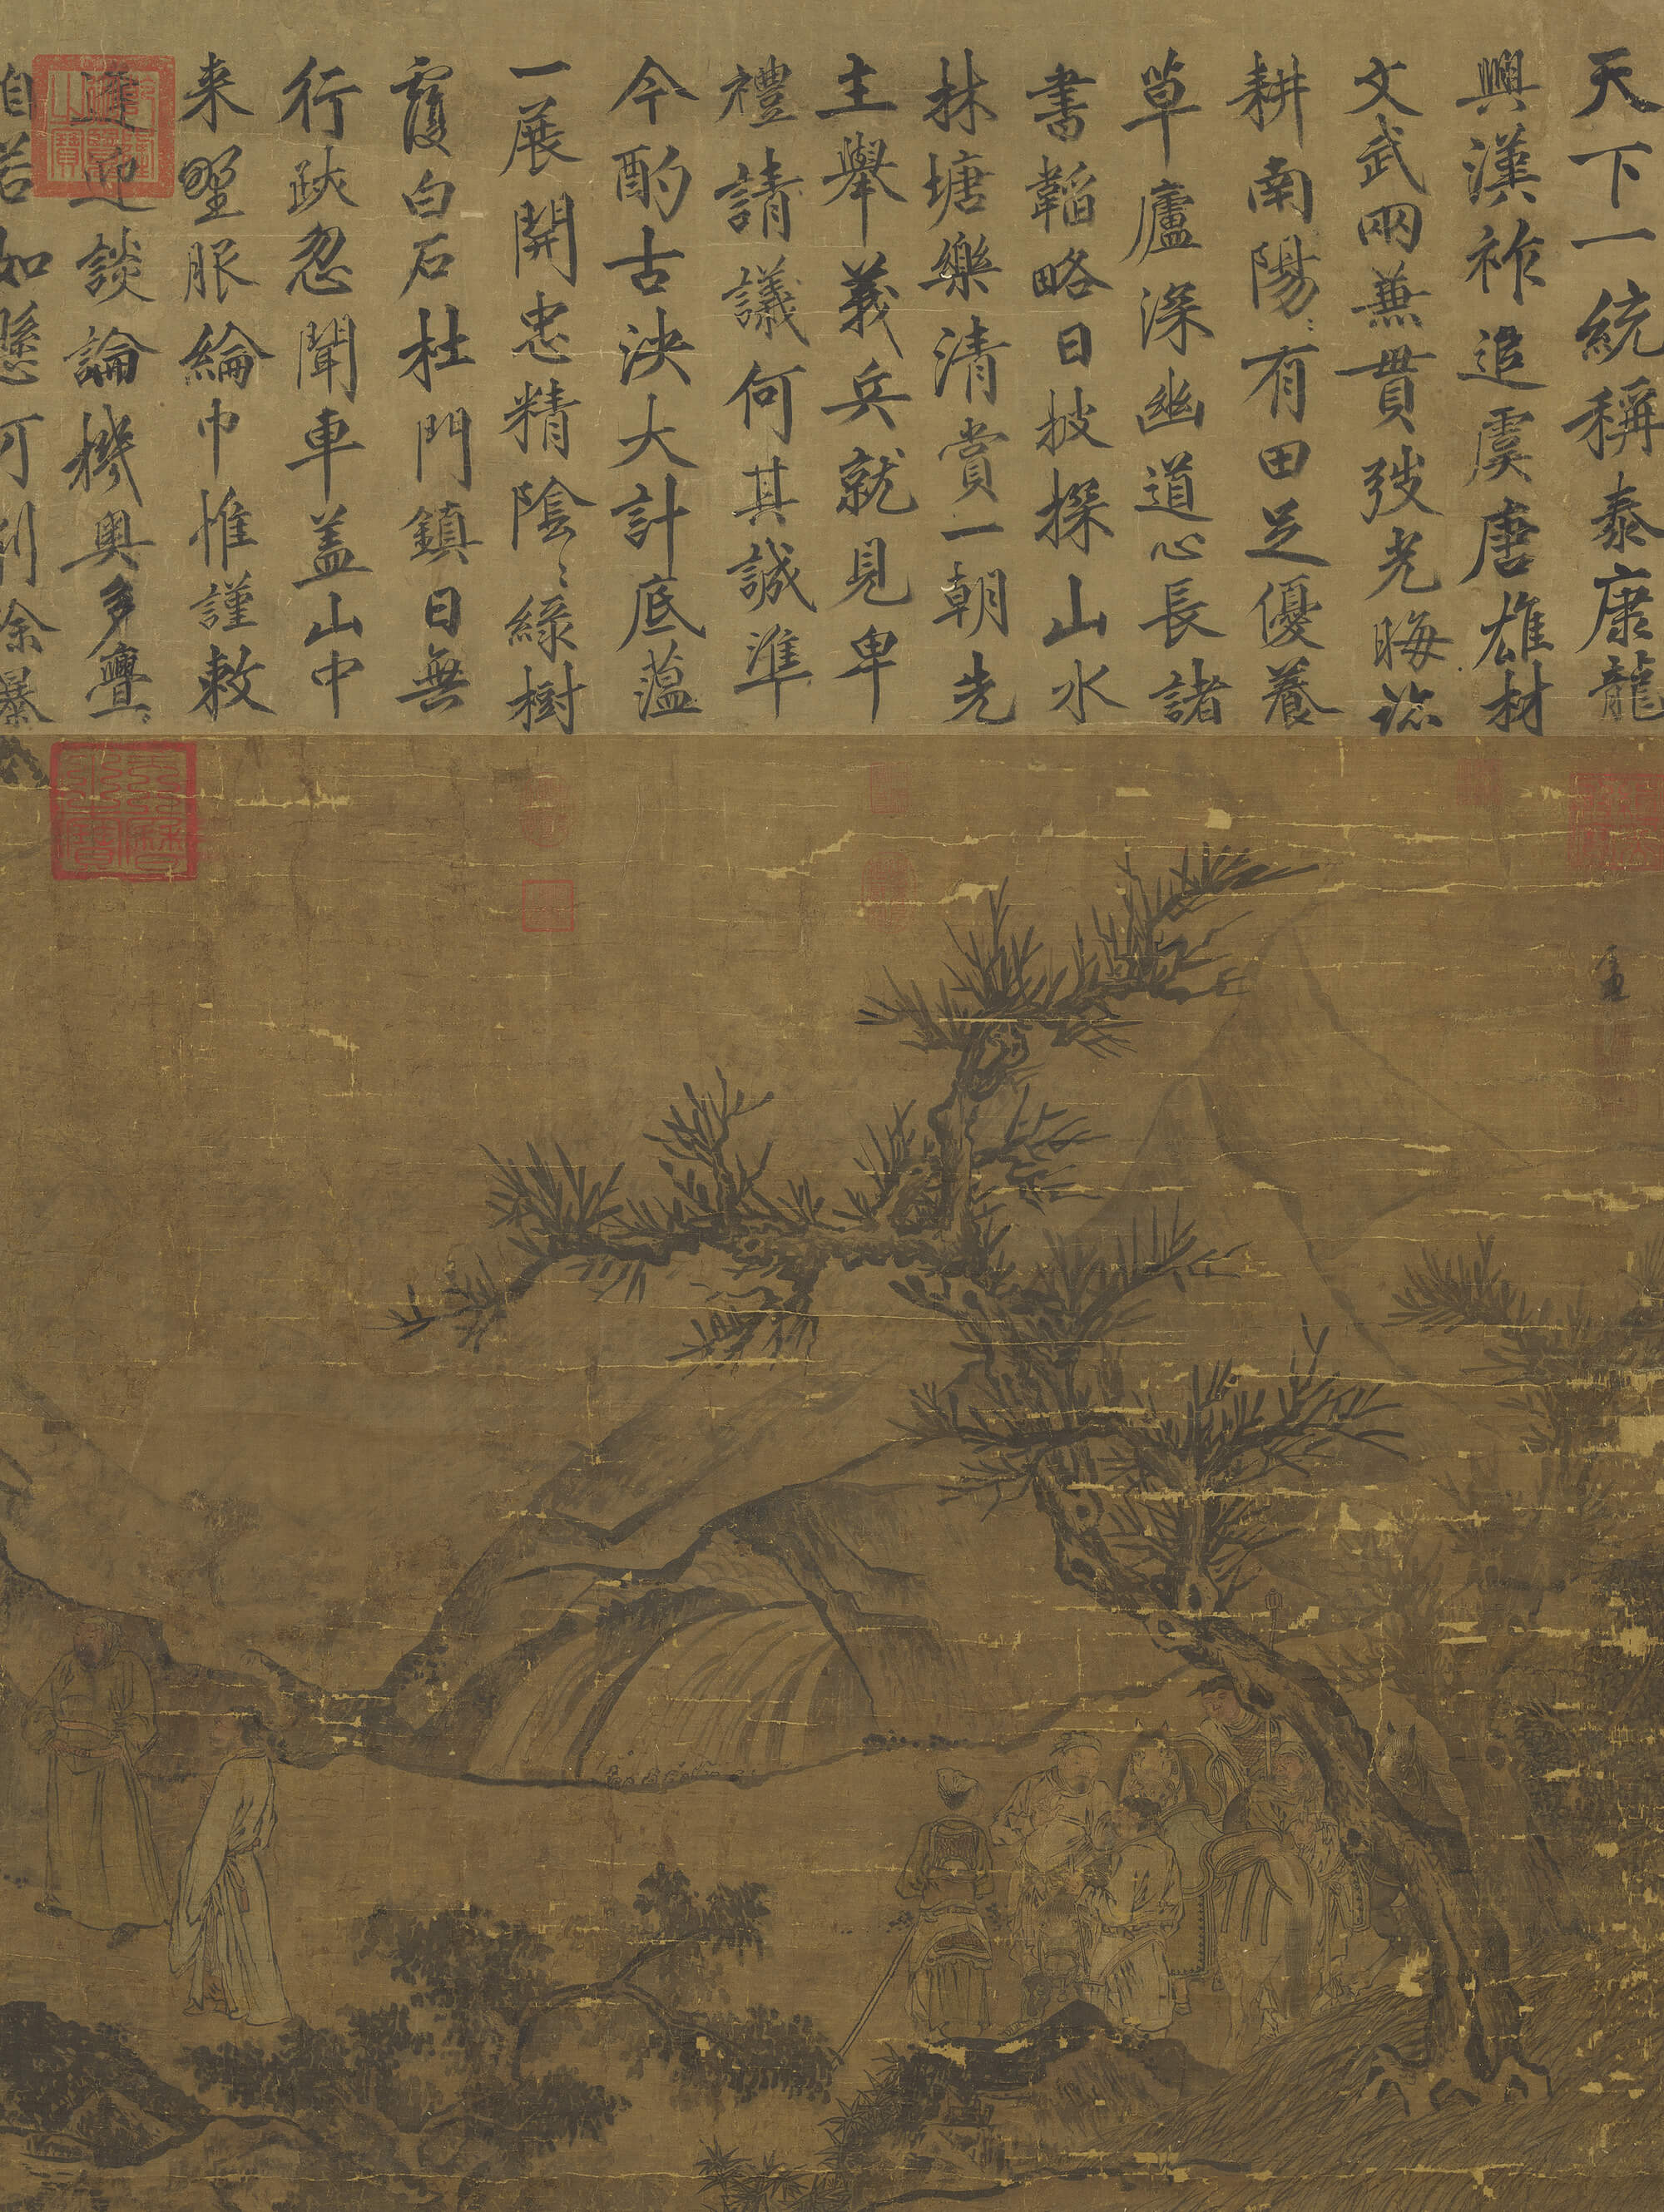 天下一統稱泰康龍
興漢祚追虞唐雄材
文武兩兼貫弢光晦迹
耕南陽〻有田足優養
草廬深幽道心長諸
書韜略日披探山水
林塘樂清賞一朝先
主舉義兵就見卑
禮請議何其誠準
今酌古決大計底蘊
一展開忠精陰〻綠樹
覆白石杜門鎮日無
行跡忽聞車盖山中
来野服綸巾惟謹敕
逢迎談論機奧多亹〻
自若如懸河剗除暴